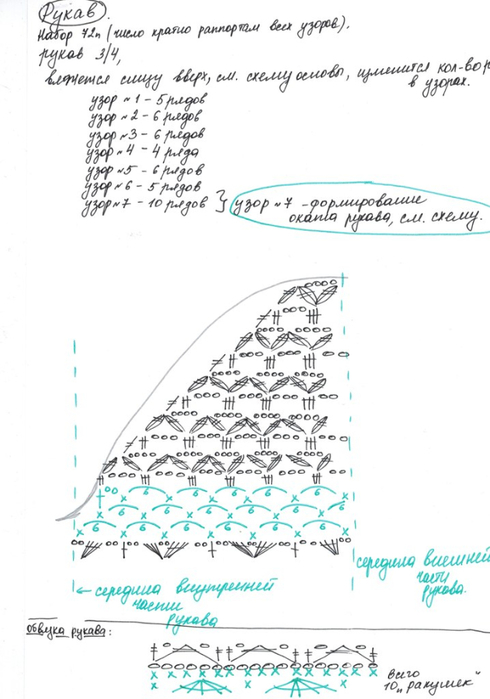 Рукав.
Набор 72п (число кратно раппортам всех узоров).
рукав 3/4,
вяжется снизу вверх, см. схему основы, изменится кол-во р
в узорах.
узор №1 - 5 рядов
узор №2 - 6 рядов
узор №3 - 6 рядов
узор №4 - 4 ряда
узор №5 - 6 рядов
узор №6 - 5 рядов
узор №7 - 10 рядов } узор №7 - формирование
оката рукава, см. схему.
6 6 6 6
6 6 6 6
6 6 6 6
середина внешней
части
рукава.
← середина внутренней
части
рукава
Обвязка рукава:
всего
10 „ракушек"